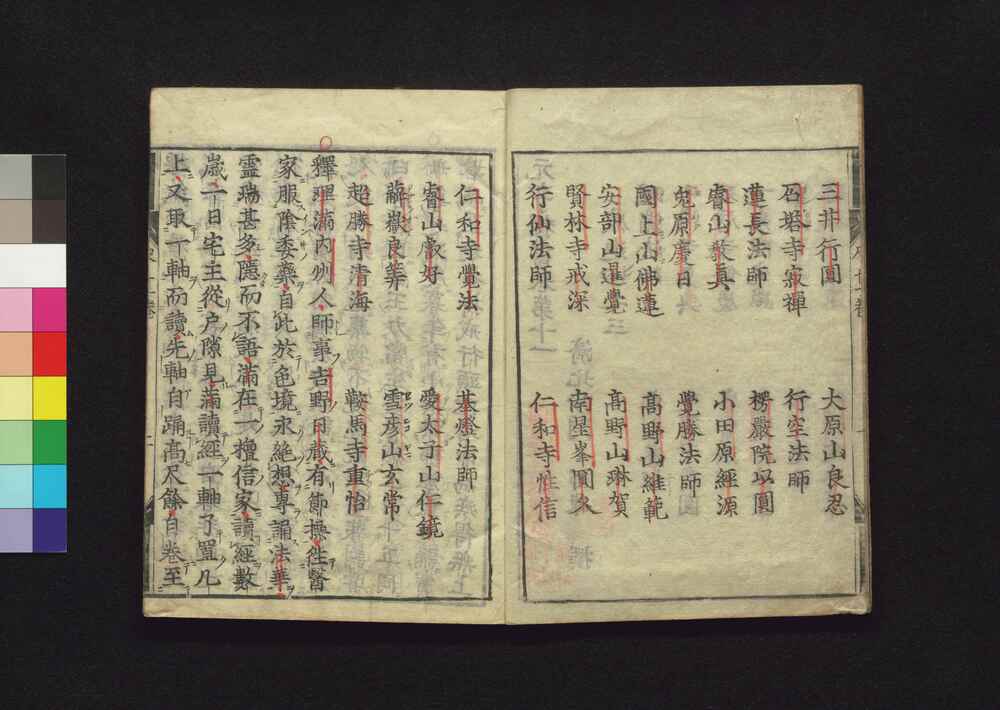 三井行圓　大原山良忍
石塔寺寂禪　行空法師
蓮長法師　楞嚴院以圓
睿山敎眞　小田原經源
兔原慶日　覺勝法師
國上山佛蓮　高野山維範
安部山暹覺　高野山琳賀
賢林寺戒深　南星峯圓久
行仙法師　仁和寺性信
仁和寺覺法　基燈法師
睿山叡好　愛太子山仁鏡
藥嶽良筭　雪彥山玄常
超勝寺清海　鞍馬寺重怡
釋理滿内州人師事吉野日藏有節操性醫
家服陰委藥自此於色境永絶想專誦法華
靈瑞甚多隱而不語滿在一檀信家讀經數
歳一日宅主從户隙見滿讀經一軸了置几
上又取一軸而讀先軸自踊高尺餘自卷至